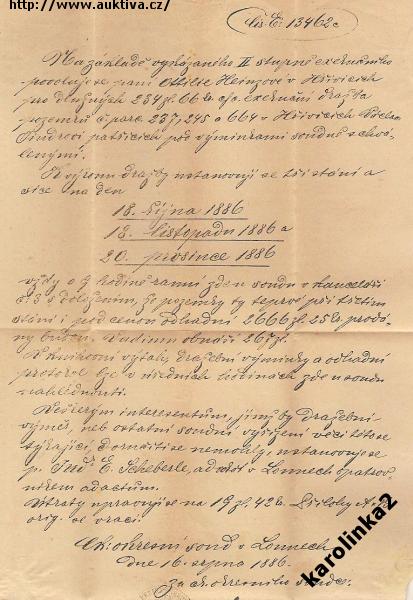 http://www.auktiva.cz/
čís. E. 13462 c
Na základě vykázaného II stupně exekučního
povoluje se paní Otilie Heinzové v Hřivicích
pro dlužných 289 zl. 06 kr. c/s. exekuční dražba
pozemků č. parc. 237, 245 a 664 v Hřivicích
patřících pod výminkami soudně schvá-
lenými.
K výkonu dražby ustanovují se tři stání a
sice na den
18. října 1886
18. listopadu 1886 a
20. prosince 1886
vždy o 9 hodině ranní zde u soudu v kanceláři
č. 3 s doložením, že pozemky ty teprvé při třetím
stání i pod cenou odhadní 2666 zl. 25 kr. prodá-
ny budou. Vadium obnáší 267 zl.
Knihovní výtah, dražební výminky a odhadní
protokol lze v úředních hodinách zde u soudu
nahlédnouti.
Veškerým interesentům, jimž by dražební
výměr, neb ostatní soudní vyřízení věci této se
týkající, doručiti se nemohly, ustanovuje se
p. JUDr. E. Scheberle, advokát v Lounech opatrov-
níkem ad actum.
Útraty upravují se na 19 zl. 42 kr. Přílohy
orig. se vrací.
C.k. okresní soud v Lounech
dne 16. srpna 1886.
Za c.k. okresního soudce:
karolinka2